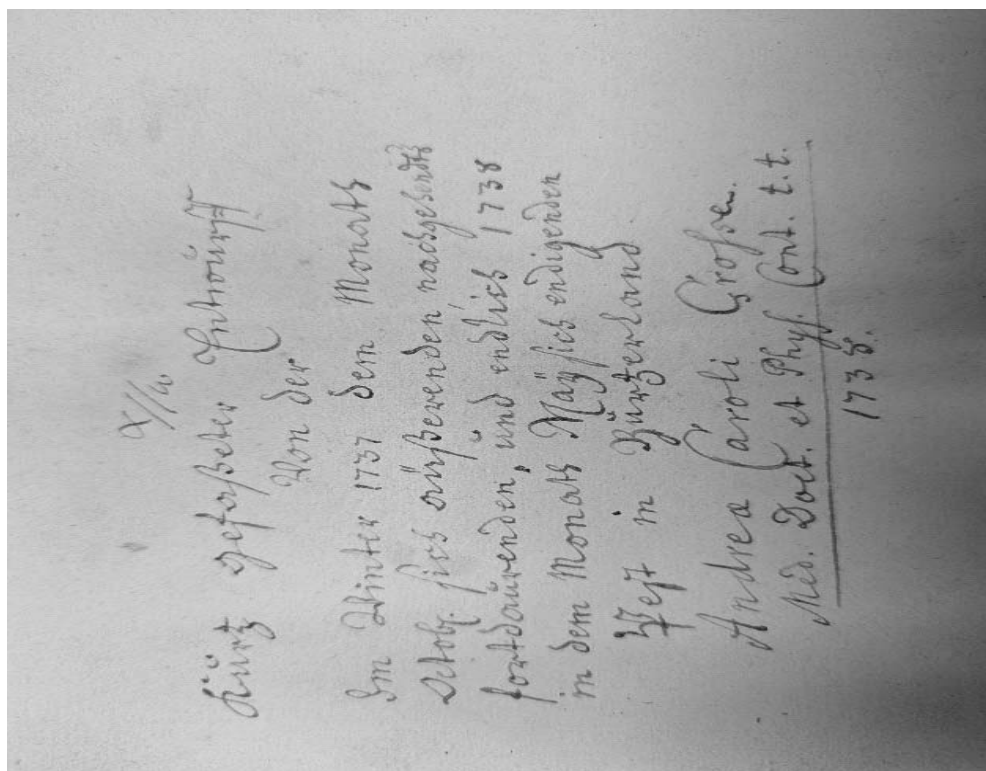 Kurtz gefaßeter Entwurff
Von der
Im Winter 1737 dem Monath
Octobr. sich äußerenden nachgehendts
fortdaurenden, und endlich 1738
in dem Monath Maÿ sich endigenden
Pest in Burtzerland
Andrea Caroli Großen.
Med. Doct. et Phys. Cort. t.t.
1738.